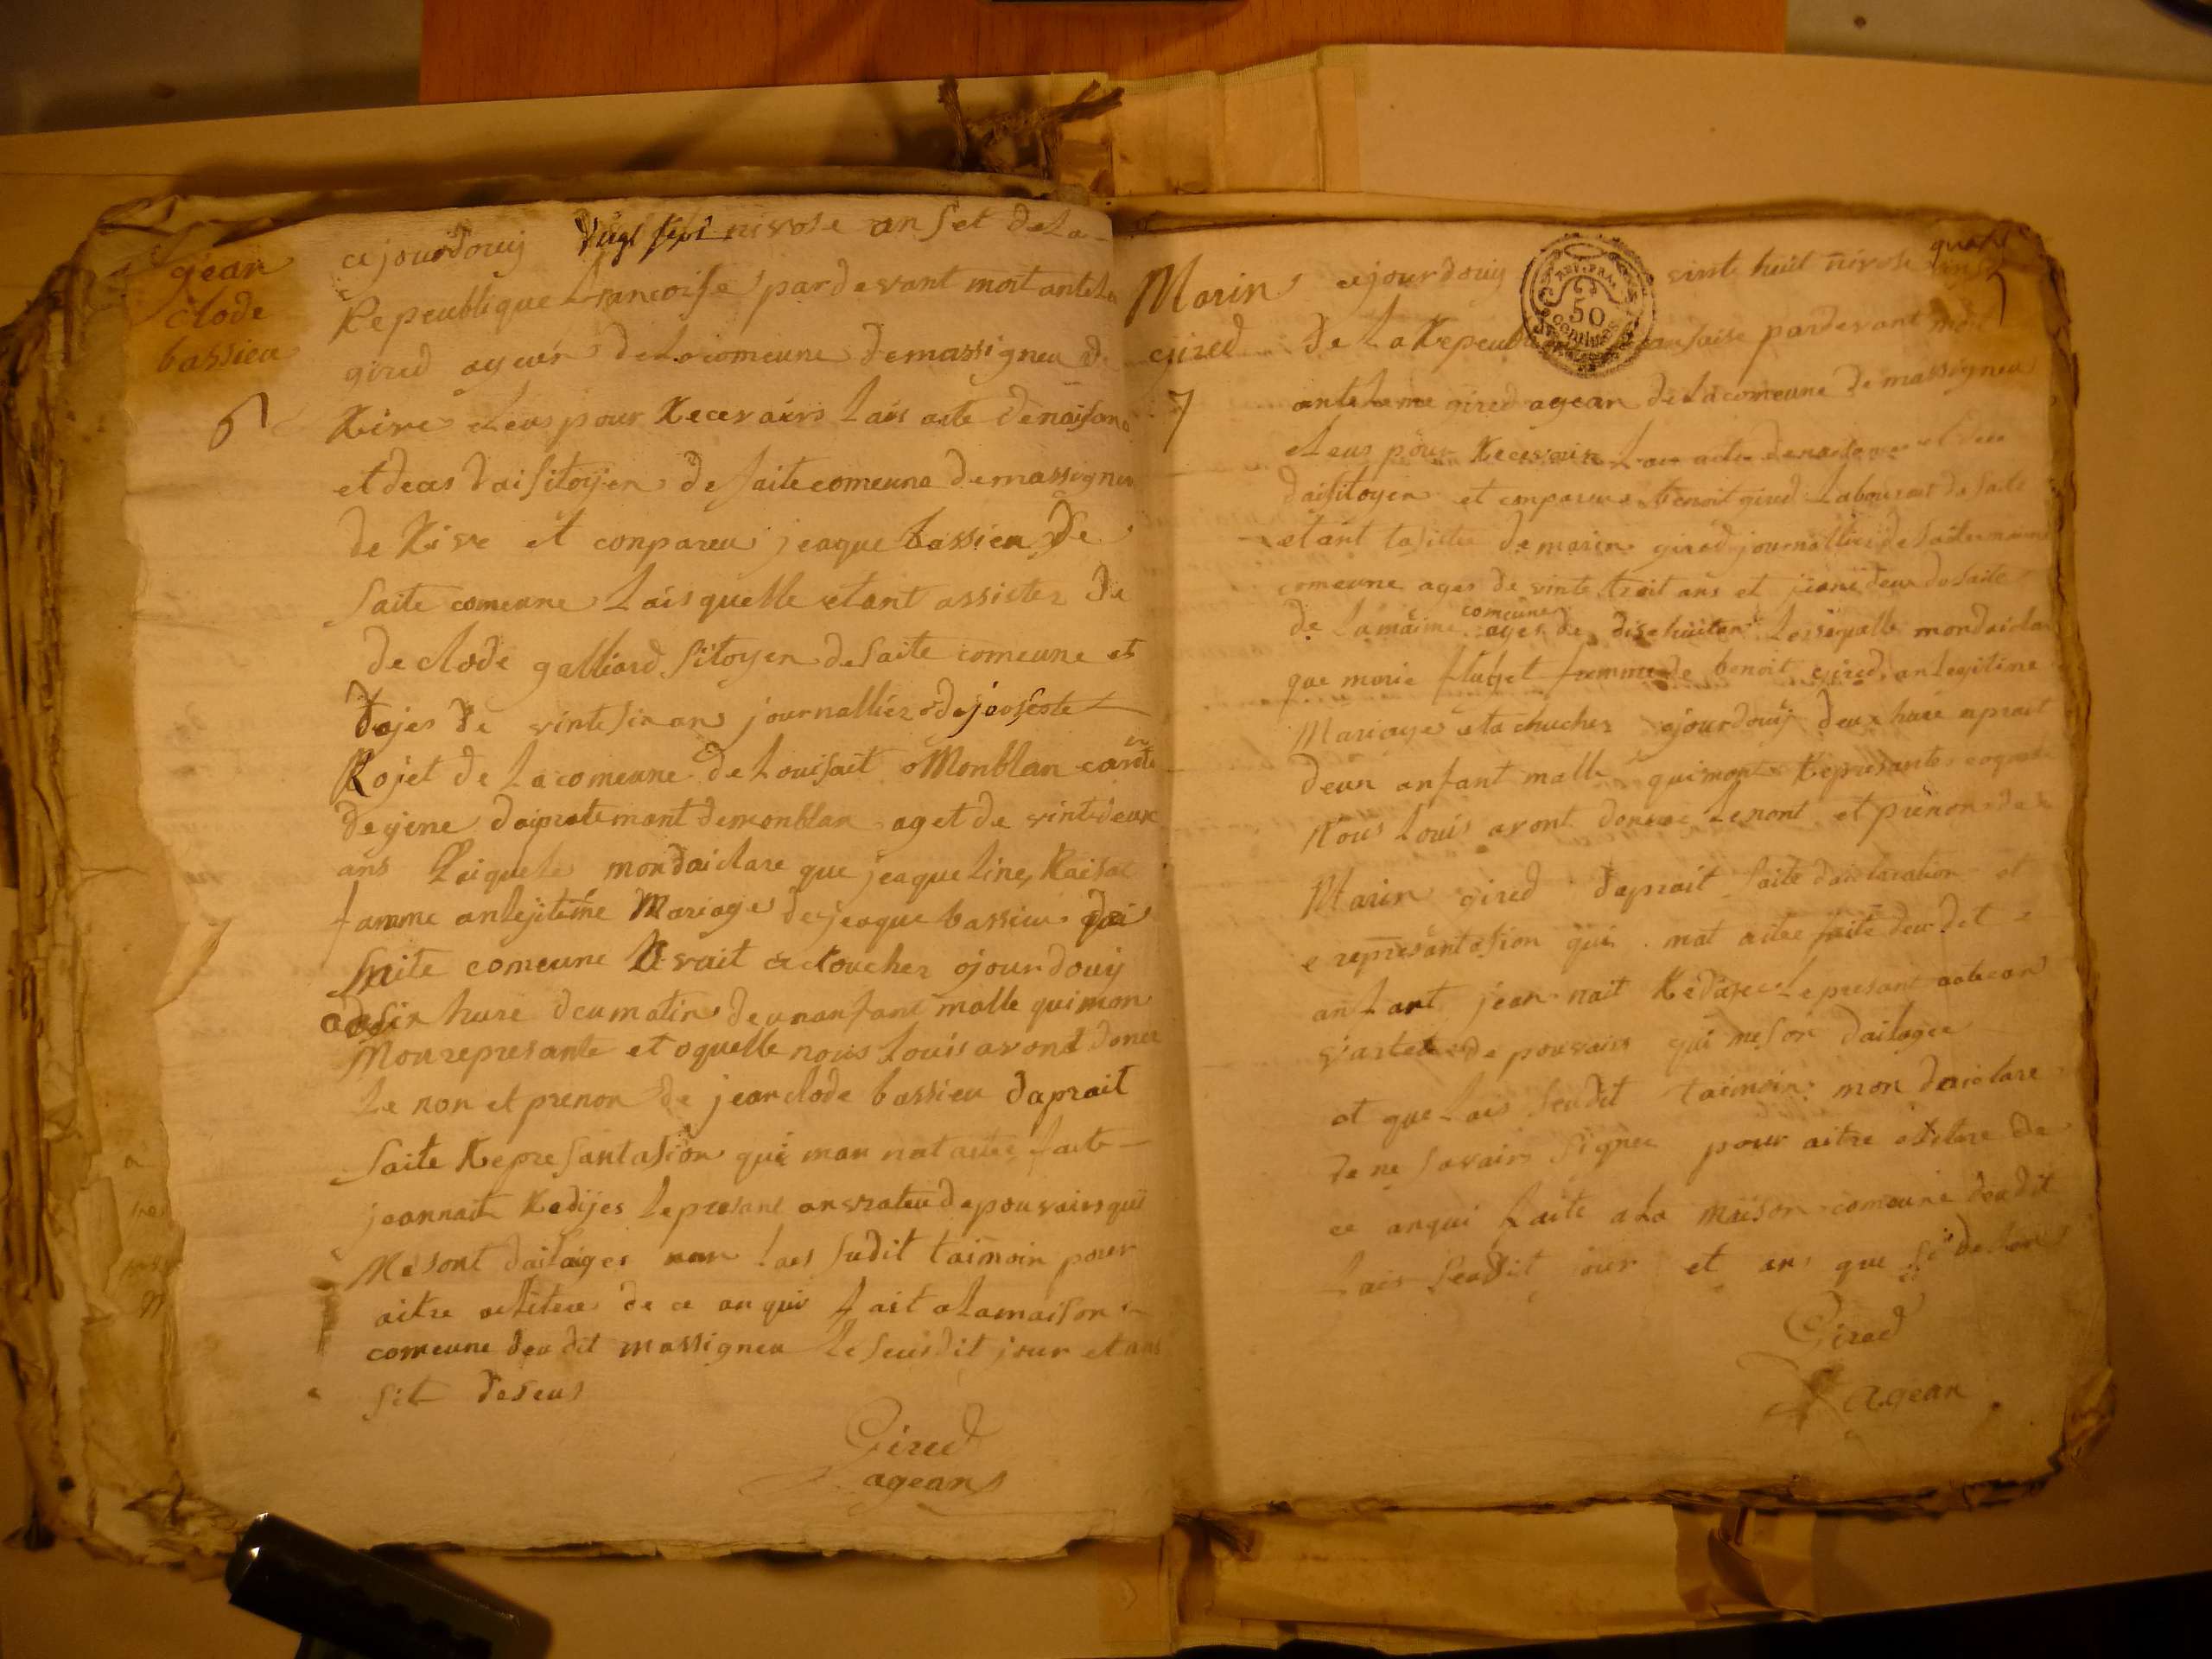 gean
clode
bassieu
6
ce jourdouij vingt sept nivose an set de la
Repeublique francoise pardevant moit antelm
gired agean de la comeune de massigneu de
Rive eleus pour Recevoirs lais acte de naisanc
et deces dai sitoijen de saite comeune de massigneu
de Rive et conpareu jeaque bassieu de
saite comeune laisquelle etant assister de
de clode galliard sitoyen de saite comeune et
dajes de vinte sin ans journallier o dejeoscote
Rojet de la comeune de Louisait o Monblan canton
de yene daipratemant demonblan aget de vinte deux
ans laiquele mondaiclare que jeaqueline Raisat
famme anlejiteme Mariage de jeaque bassieu dai
saite comeune avait actoucher ojourdouij
a sin hure deu matin deunanfant malle quimon
Mourepresante et oquelle nous louis avont doner
Le non et prenon de jean clode bassieu daprait
saite Represantasion qui man nat aitee faite
jeannait Redijes le presant anvrateu de pouvairs qui
Mesont dailaiges lais sudit taimoin pour
aitre de ce anqui fait a lamaison
comeune deu dit massigneu le seusdit jour et ans
sit deseus
Gired
agean
Marin
gired
7
cejourdouij vinte huit nivose an set
REP. FRA.
50
centimes
de La Repeu ansaise pardevant moit
antelme gired agean de la comeune de massigneu
eleus pour Recevoir lais acte denaisance et dece
daisitoyen et conpareu benoit gired laboureur de saite
etant lasister de marin gired journallier de saite maime
comeune ages de vinte troit ans et deu de saite
de lamaime comeune ages de disehuitan laisquelle mondaiclar
que marie flutet femme de benoit gired anlegitime
Mariage eta chucher ojourdouij deux hure aprait
deun anfant malle quimont Represante oquelle
Nous louis avont donnee le nont et prenon de
Marin gired daprait saite daiclaration et
e represantasion qui mat aitee faite deu det
anfant jean nait Redajee le presant acte an
vartue de pouvairs qui meson dailagee
et que lais seudit taimoin mon daiclare
de ne savairs signee pour aitre de
ce anqui faite a la maison comeune deudit
lais seudit iour et ans que si deseus
Gired
agean